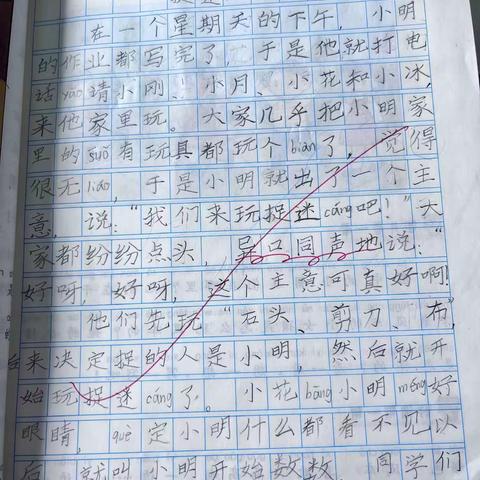 在一个星期天的下午，小明
的作业都写完了，于是他就打电
话yāo请小刚、小月、小花和小冰，
来他家里玩。大家几乎把小明家
里的suǒ有玩具都玩个biàn了，觉得
很无liáo，于是小明就出了一个主
意，说：“我们来玩捉迷cáng吧！”大
家都纷纷点头，异口同声地说：“
好呀，好呀，这个主意可真好啊！
他们先玩“石头、剪刀、布”，
后来决定捉的人是小明，然后就开
始玩捉迷cáng了。小花bāng小明méng好
眼睛，què定小明什么都看不见以
后，就叫小明开始数数，同学们